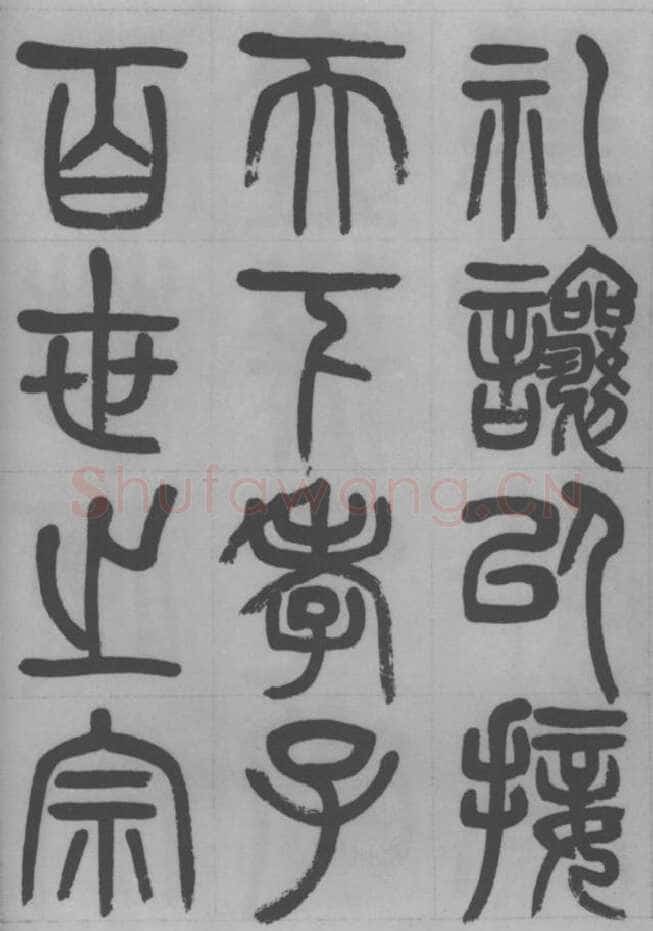 礼讓以接
天下孝子
百世之宗
Shufawang.CN